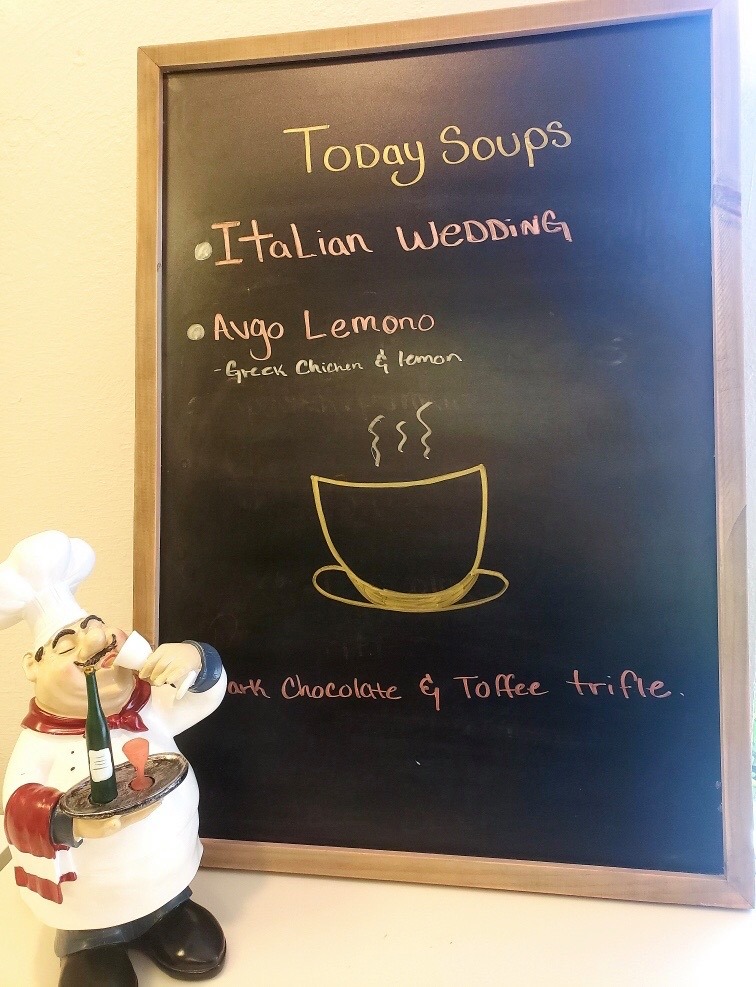 Today Soups
Italian Wedding
Avgo Lemono
- Greek Chicken & lemon
ark Chocolate & Toffee trifle.